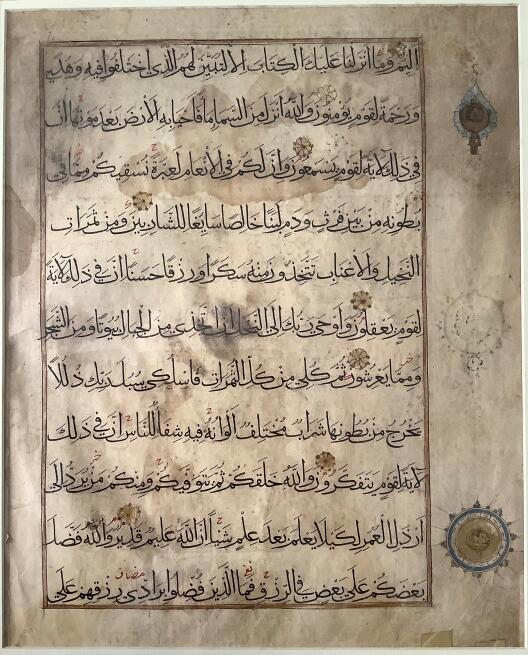 اليم وما انزلنا عليك الكتاب الا لتبين لهم الذي اختلفوا فيه وهدى
ورحمة لقوم يؤمنون والله انزل من السماء ماء فاحيا به الارض بعد موتها ان
في ذلك لاية لقوم يسمعون وان لكم في الانعام لعبرة نسقيكم مما في
بطونه من بين فرث ودم لبنا خالصا سايغا للشاربين ومن ثمرات
النخيل والاعناب تتخذون منه سكرا ورزقا حسنا ان في ذلك لاية
لقوم يعقلون واوحى ربك الى النحل ان اتخذي من الجبال بيوتا ومن الشجر
ومما يعرشون ثم كلي من كل الثمرات فاسلكي سبل ربك ذللا
يخرج من بطونها شراب مختلف الوانه فيه شفا للناس ان في ذلك
لاية لقوم يتفكرون والله خلقكم ثم يتوفيكم ومنكم من يرد الى
ارذل العمر لكيلا يعلم بعد علم شيئا ان الله عليم قدير والله فضل
بعضكم على بعض في الرزق فما الذين فضلوا برادي رزقهم على